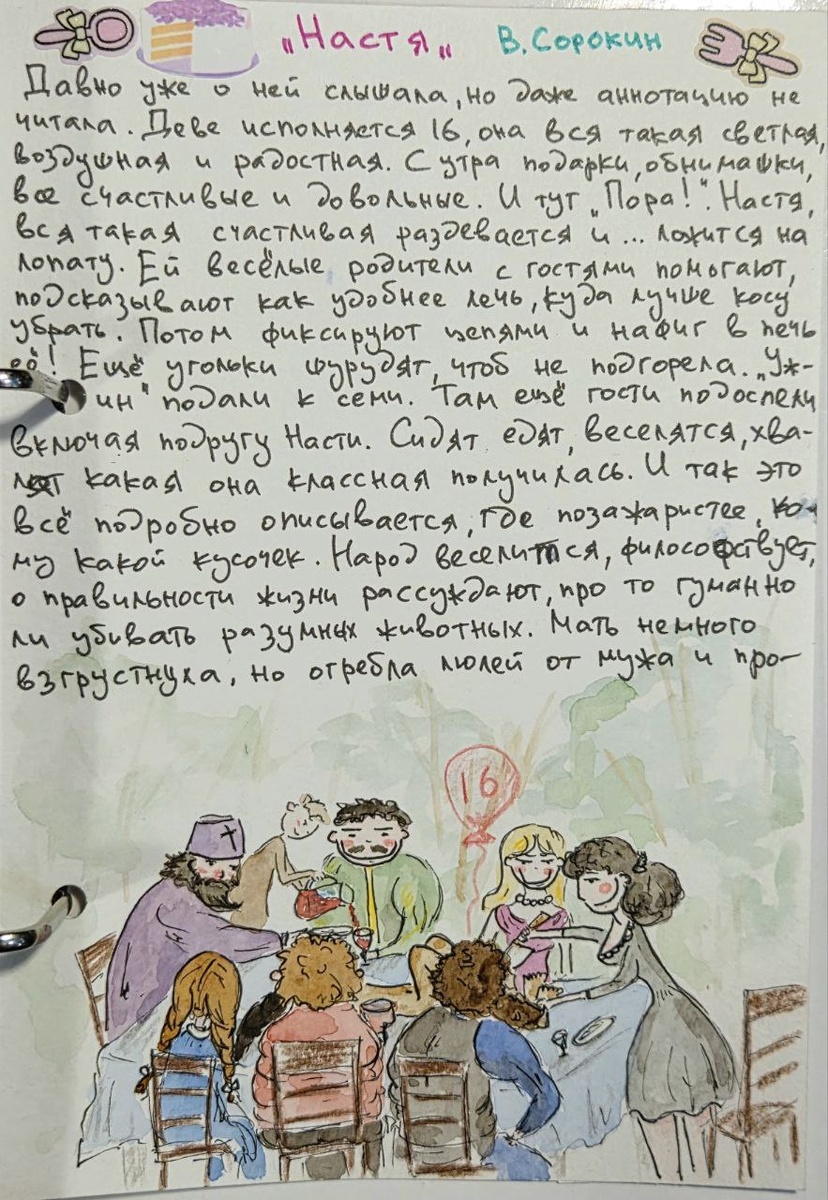 „Настя„ В. Сорокин
Давно уже о ней слышала, но даже аннотацию не
читала. Деве исполняется 16, она вся такая светлая,
воздушная и радостная. С утра подарки, обнимашки,
все счастливые и довольные. И тут „Пора!". Настя,
вся такая счастливая раздевается и ... ложится на
лопату. Ей весёлые родители с гостями помогают,
подсказывают как удобнее лечь, куда лучше косу
убрать. Потом фиксируют цепями и нафиг в печь
её! Ещё угольки шурудят, чтоб не подгорела. „Уж-
ин" подали к семи. Там ещё гости подоспели
включая подругу Насти. Сидят, едят, веселятся, хва-
лят какая она классная получилась. И так это
всё подробно описывается, где позажаристее, ко-
му какой кусочек. Народ веселится, философствует,
о правильности жизни рассуждают, про то гуманно
ли убивать разумных животных. Мать немного
взгрустнула, но огребла люлей от мужа и про-
16